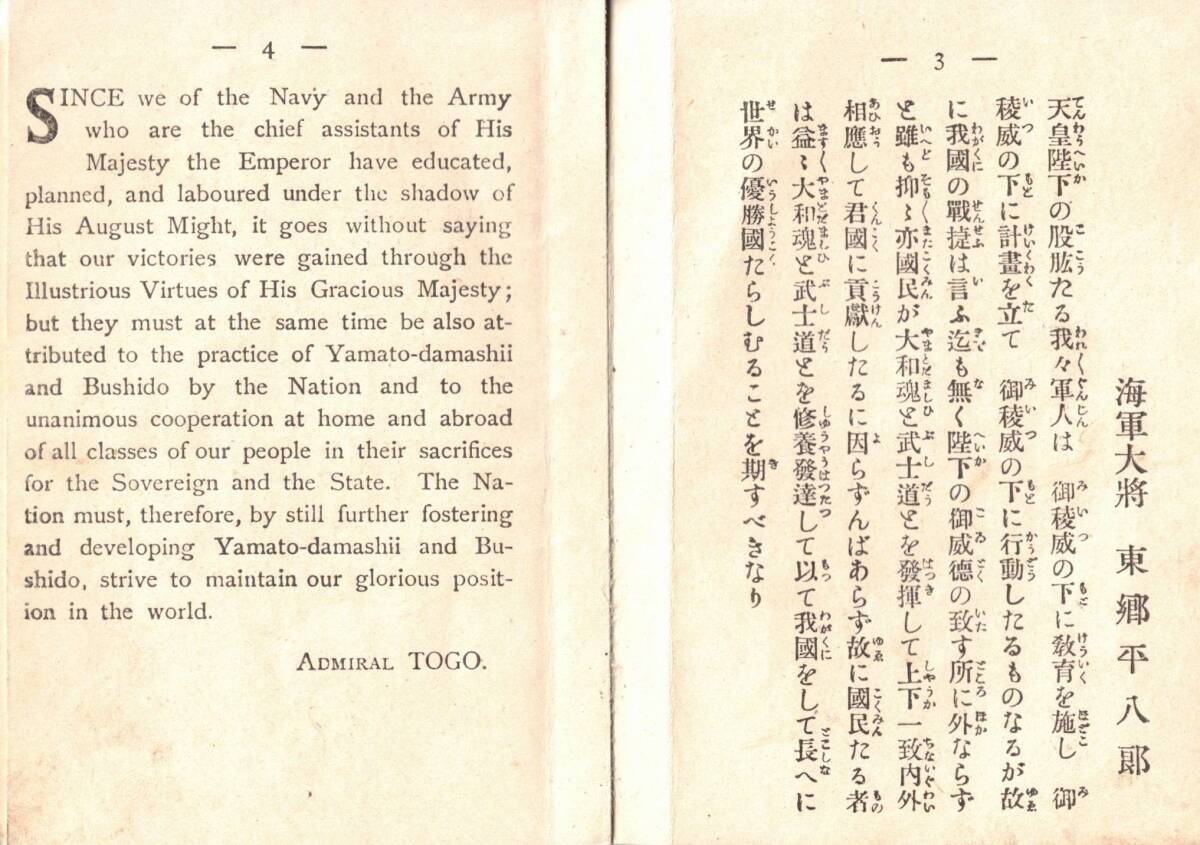 — 3 —
海軍大將 東郷平八郎
天皇陛下の股肱たる我々軍人は 御稜威の下に敎育を施し 御
稜威の下に計畫を立て 御稜威の下に行動したるものなるが故
に我國の戰捷は言ふ迄も無く陛下の御威德の致す所に外ならず
と雖も抑〻亦國民が大和魂と武士道とを發揮して上下一致内外
相應して君國に貢獻したるに因らずんばあらず故に國民たる者
は益〻大和魂と武士道とを修養發達して以て我國をして長へに
世界の優勝國たらしむることを期すべきなり
— 4 —
SINCE we of the Navy and the Army
who are the chief assistants of His
Majesty the Emperor have educated,
planned, and laboured under the shadow of
His August Might, it goes without saying
that our victories were gained through the
Illustrious Virtues of His Gracious Majesty;
but they must at the same time be also at-
tributed to the practice of Yamato-damashii
and Bushido by the Nation and to the
unanimous cooperation at home and abroad
of all classes of our people in their sacrifices
for the Sovereign and the State. The Na-
tion must, therefore, by still further fostering
and developing Yamato-damashii and Bu-
shido, strive to maintain our glorious posit-
ion in the world.
ADMIRAL TOGO.